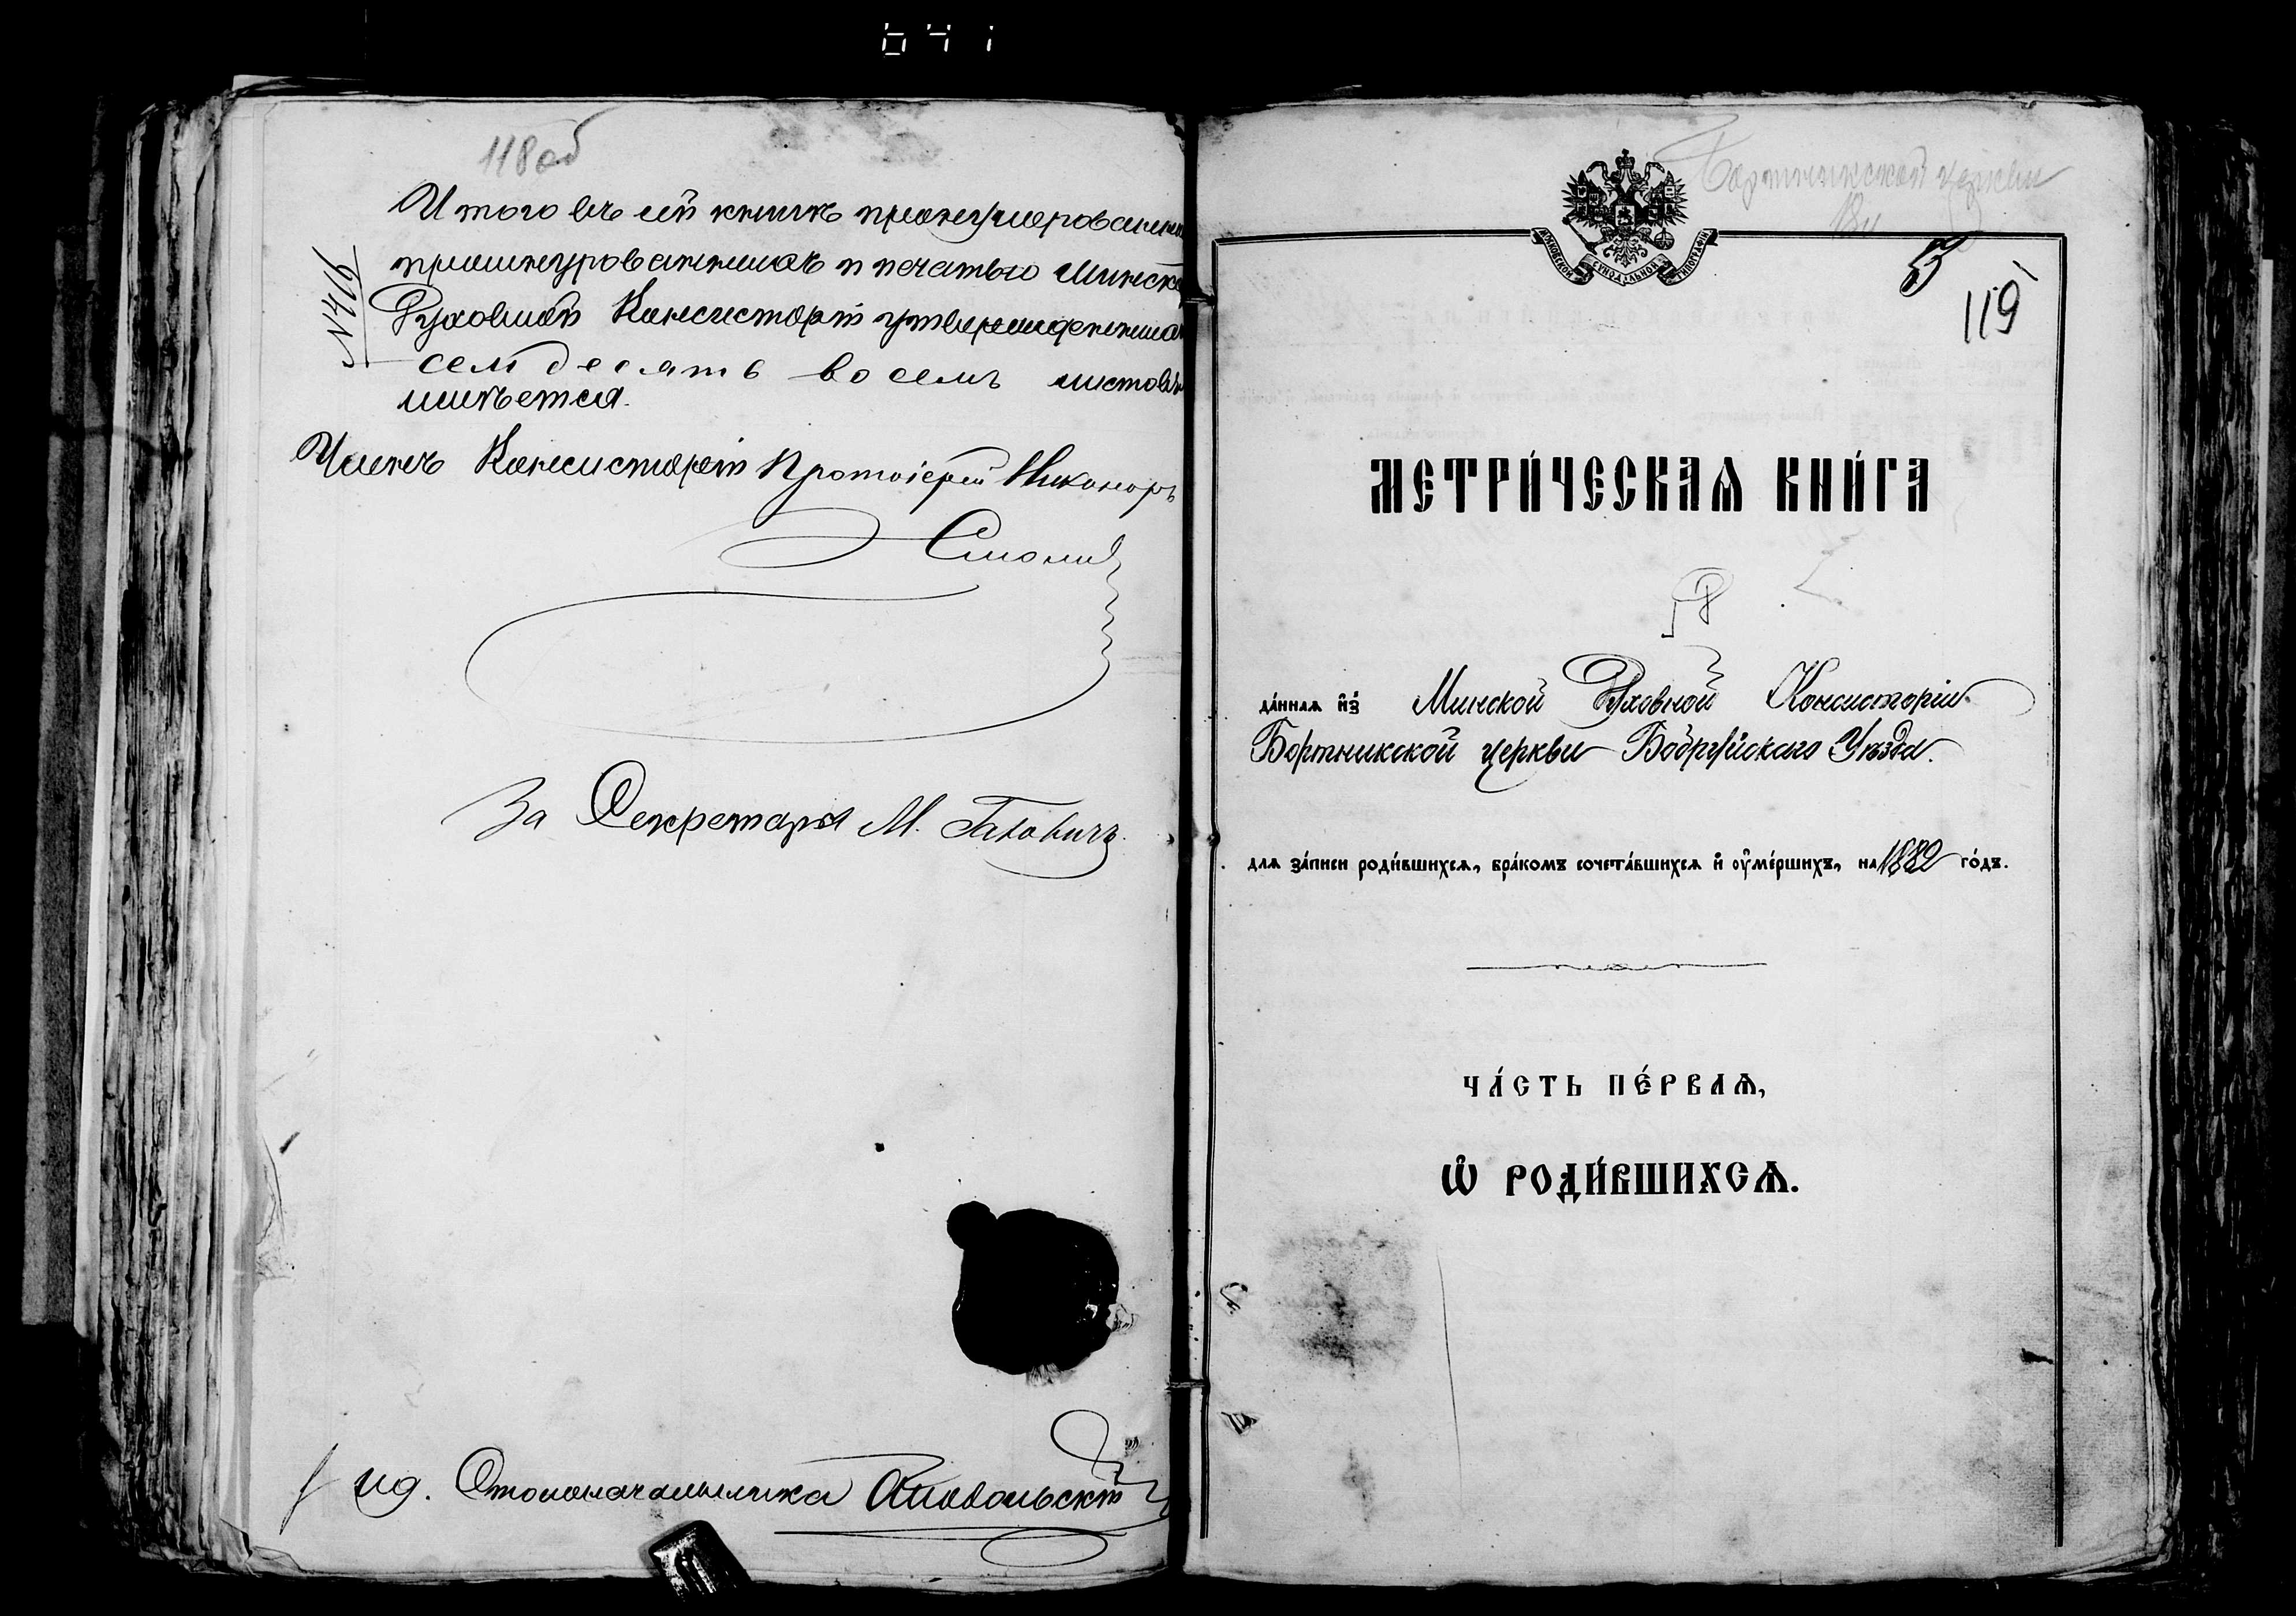 641
118 об
Итого въ сей книгѣ пронумерованныхъ
прошнурованныхъ и печатью Минской
Духовной Консисторіи утвержденныхъ
семдесятъ восемъ листовъ
имѣется.
№ 416
Членъ Консисторіи Протоіерей Никаноръ
За Секретаря М.
и д. Столоначальника
Бортникской церкви
МОСКОВСКОЙ СѴНОДАЛЬНОЙ ТИПОГРАФІИ
5
119
МЕТРИ́ЧЕСКАѦ КНИ́ГА
да́ннаѧ и҆з̾ Минской Духовной Консисторіи
Бортникской церкви Бобруйскаго Уѣзда.
длѧ за́писи роди́вшихсѧ, бра́комъ сочета́вшихсѧ и҆ ᲂу҆ме́ршихъ, на 1882 го́дъ.
ЧА́СТЬ ПЕ́РВАѦ,
Ѽ РОДИ́ВШИХСѦ.